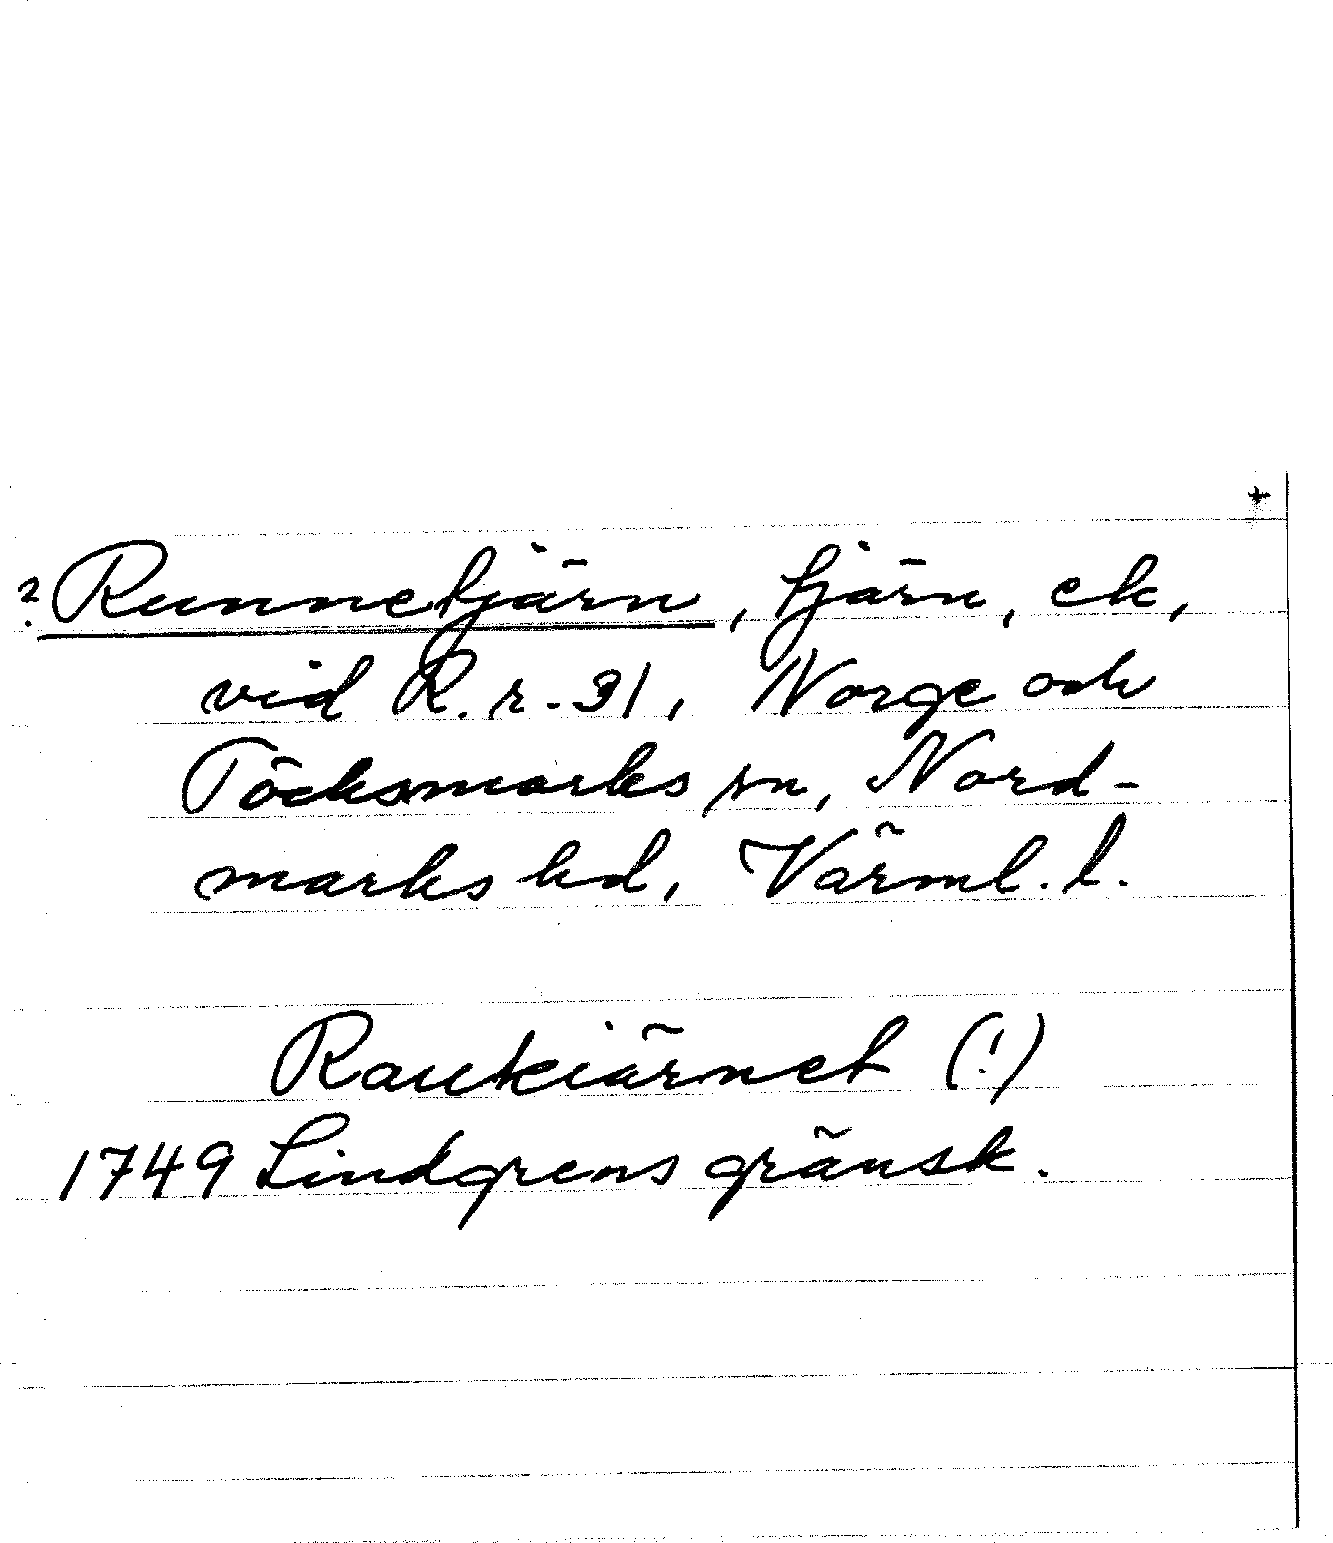 +
? Runnetjärn, tjärn, ek,
vid R.r. 31, Norge och
Töcksmarks sn, Nord-
marks hd, Värml. l.
Raukiärnet (!)
1749 Lindgrens gränsk.